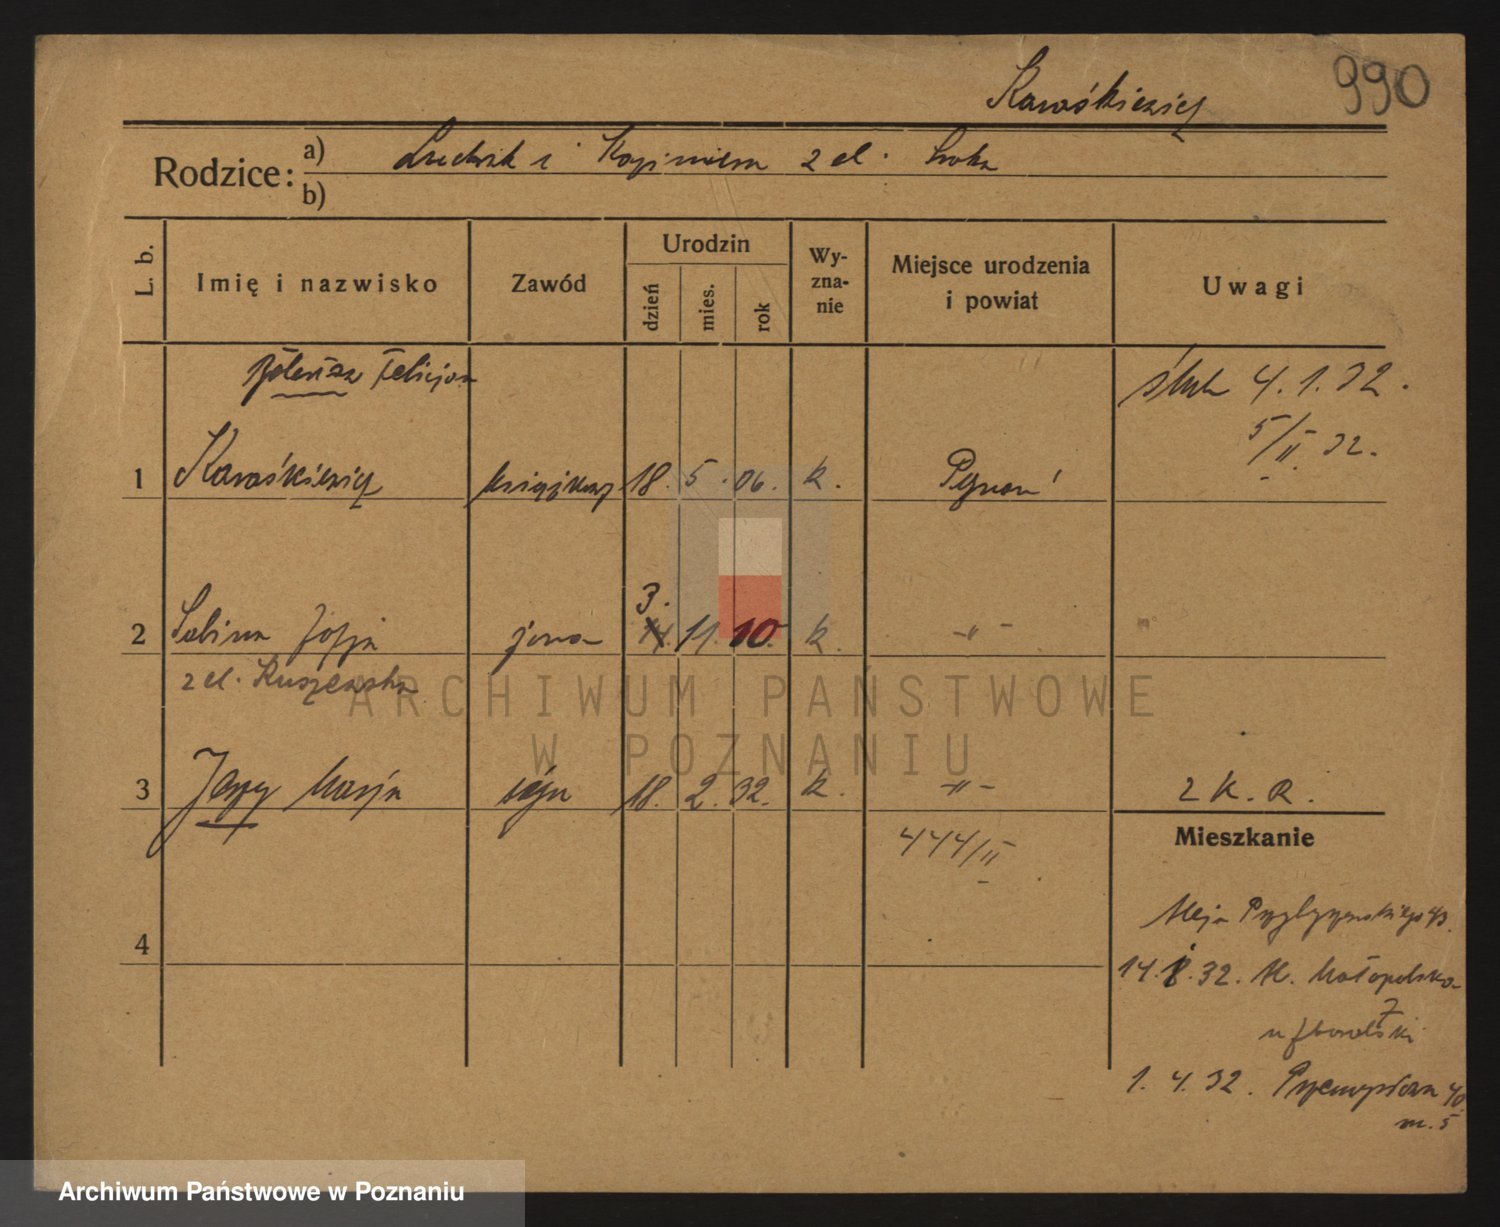 Karaśkiewicz
990
Rodzice: a) Ludwik i Kazimiera z d. Sroka
b)
L. b.
Imię i nazwisko
Zawód
Urodzin
dzień
mies.
rok
Wy-
zna-
nie
Miejsce urodzenia
i powiat
Uwagi
Felicjan
ślub 4.1.32.
5/II 32.
1 Karaśkiewicz książkowy 18. 5. 06. k. Poznań
3.
2 Sabina Zofja żona 11. 10. k. -"-
z d. Ruszewska
3 Marja córja 18. 2. 32. k. -"-
2 K. R.
444/II
Mieszkanie
4
Aleja Przybyszewskiego 43.
14. 32. Al. Małopolska
7
u
1. 4. 32. Przemysłowa 40
m. 5
ARCHIWUM PAŃSTWOWE
W POZNANIU
Archiwum Państwowe w Poznaniu